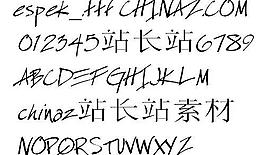 espek_ttf CHINAZ.COM
012345站长站6789
ABCDEFGHIJKLM
chinaz站长站素材
NOPQRSTUVWXYZ